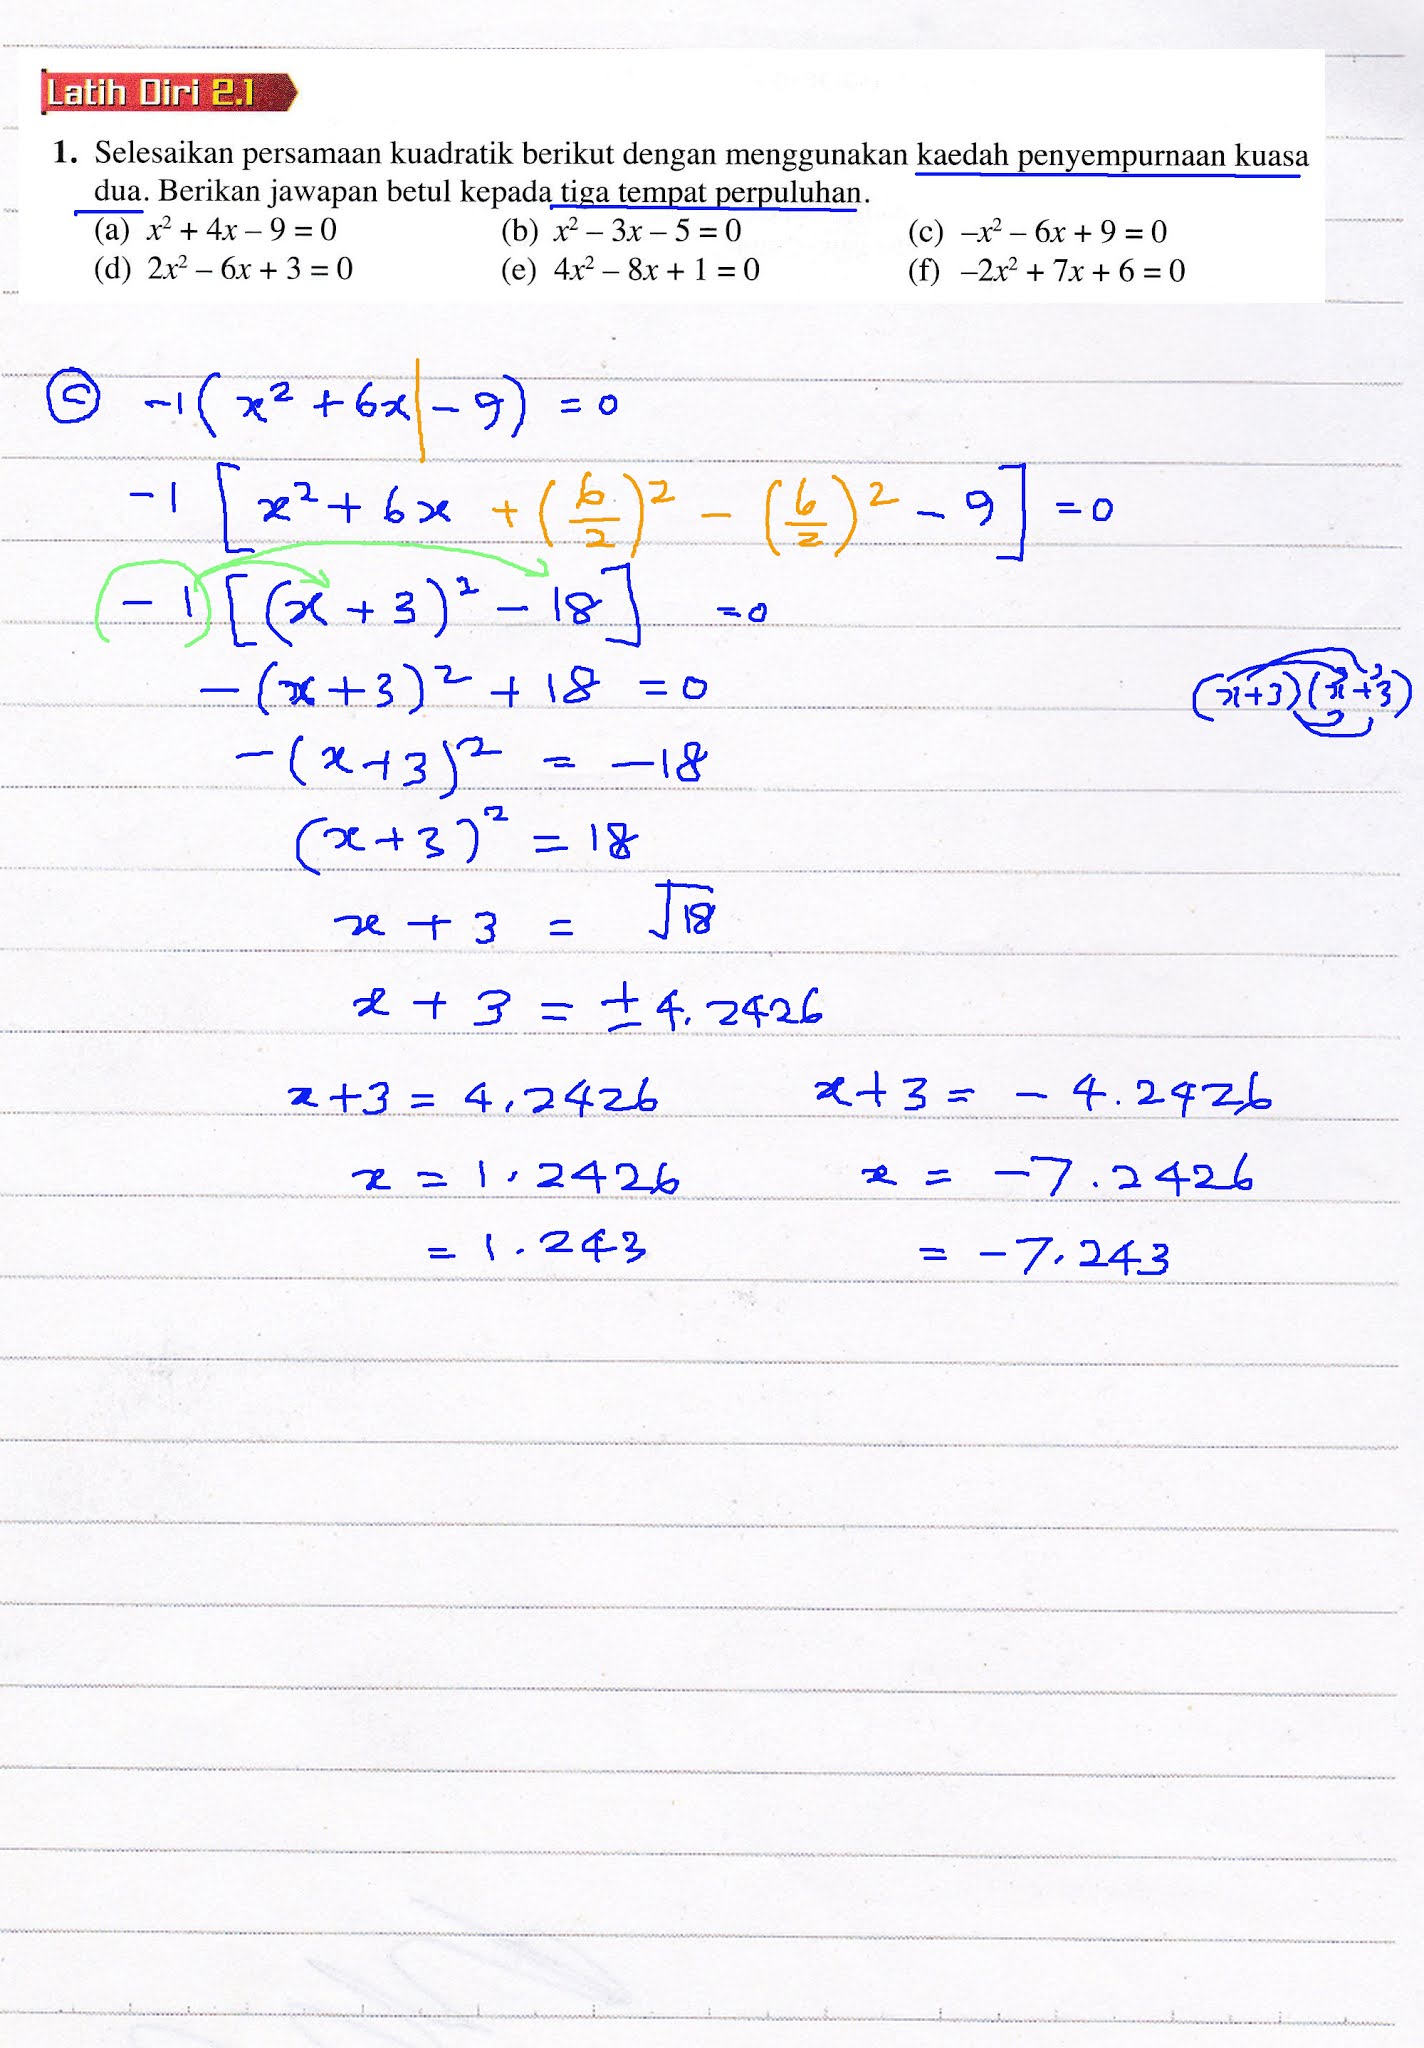 Latih Diri 2.1
1. Selesaikan persamaan kuadratik berikut dengan menggunakan kaedah penyempurnaan kuasa
dua. Berikan jawapan betul kepada tiga tempat perpuluhan.
(a) x² + 4x – 9 = 0 (b) x² – 3x – 5 = 0 (c) –x² – 6x + 9 = 0
(d) 2x² – 6x + 3 = 0 (e) 4x² – 8x + 1 = 0 (f) –2x² + 7x + 6 = 0
ⓒ -1(x² + 6x | - 9) = 0
-1[x² + 6x + (6/2)² - (6/2)² - 9] = 0
-1[(x + 3)² - 18] = 0
-(x + 3)² + 18 = 0 (x+3)(x+3)
-(x + 3)² = -18
(x + 3)² = 18
x + 3 = √18
x + 3 = ± 4.2426
x + 3 = 4.2426 x + 3 = - 4.2426
x = 1.2426 x = -7.2426
= 1.243 = -7.243